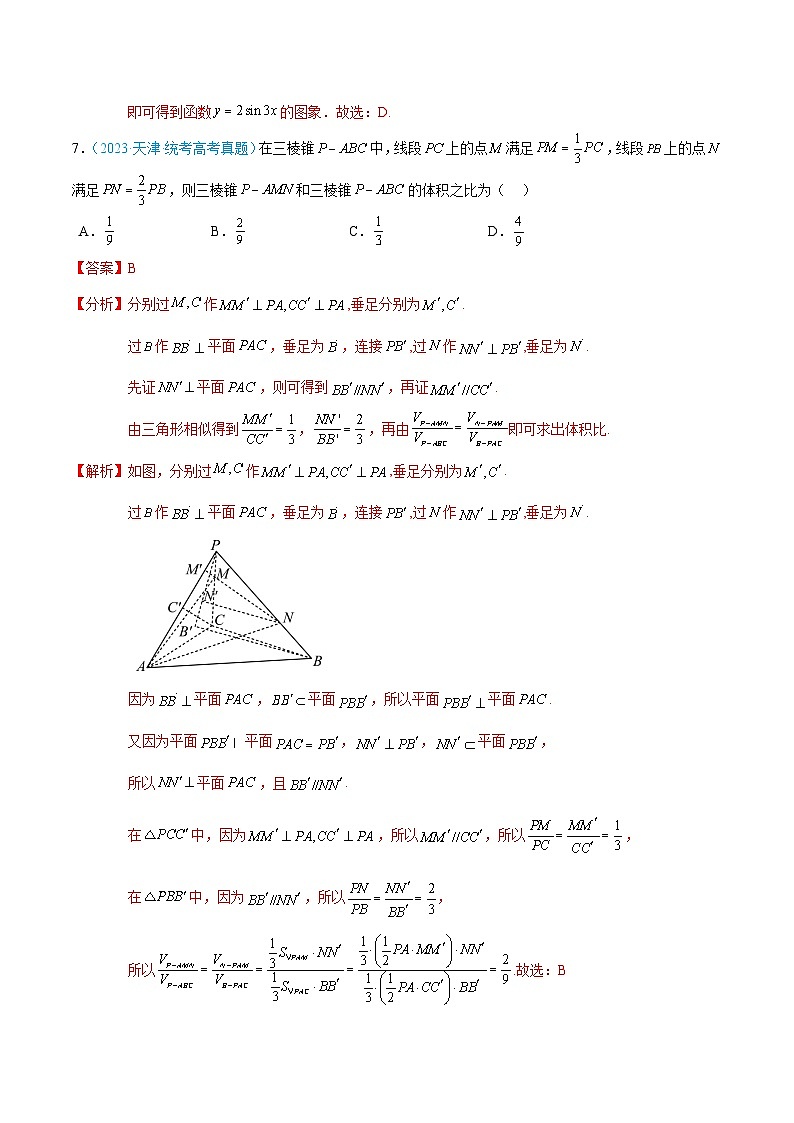 即可得到函数y = 2sin3x的图象．故选：D.
7.（2023·天津·统考高考真题）在三棱锥P－ABC中,线段PC上的点M满足PM = 1/3 PC ,线段PB上的点N
满足PN = 2/3 PB ，则三棱锥P－AMN和三棱锥P－ABC的体积之比为（ ）
A．1/9 B．2/9 C．1/3 D．4/9
【答案】B
【分析】分别过M,C作MM′⊥PA,CC′⊥PA,垂足分别为M′,C′.
过B作BB′⊥平面PAC，垂足为B′，连接PB′,过N作NN′⊥PB′,垂足为N′.
先证NN′⊥平面PAC，则可得到BB′//NN′，再证MM′//CC′.
由三角形相似得到MM′/CC′ = 1/3，NN'/BB' = 2/3，再由V_{P−AMN}/V_{P−ABC} = V_{N−PAM}/V_{B−PAC}即可求出体积比.
【解析】如图，分别过M,C作MM′⊥PA,CC′⊥PA,垂足分别为M′,C′.
过B作BB′⊥平面PAC，垂足为B′，连接PB′,过N作NN′⊥PB′,垂足为N′.
P
M′
M
N′
C′
C
N
B′
A
B
因为BB′⊥平面PAC，BB′⊂平面PBB′，所以平面PBB′⊥平面PAC.
又因为平面PBB′I 平面PAC = PB′，NN′⊥PB′，NN′⊂平面PBB′，
所以NN′⊥平面PAC，且BB′//NN′.
在△PCC′中，因为MM′⊥PA,CC′⊥PA，所以MM′//CC′，所以PM/PC = MM′/CC′ = 1/3，
在△PBB′中，因为BB′//NN′，所以PN/PB = NN′/BB′ = 2/3，
所以V_{P−AMN}/V_{P−ABC} = V_{N−PAM}/V_{B−PAC} = (1/3 S_{VPAM}·NN′)/(1/3 S_{VPAC}·BB′) = (1/3·(1/2 PA·MM′)·NN′)/(1/3·(1/2 PA·CC′)·BB′) = 2/9.故选：B